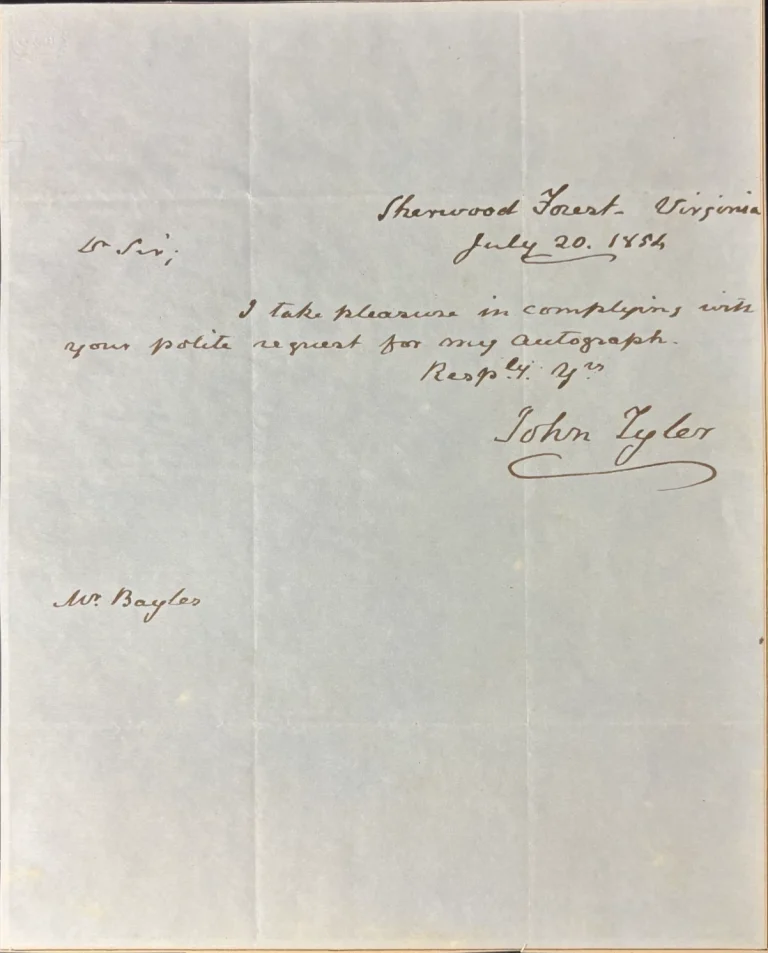 Sherwood Forest - Virginia
July 20. 1854
Dr Sir;
I take pleasure in complying with
your polite request for my autograph.
Resply. Yrs
John Tyler
Mr. Bayles